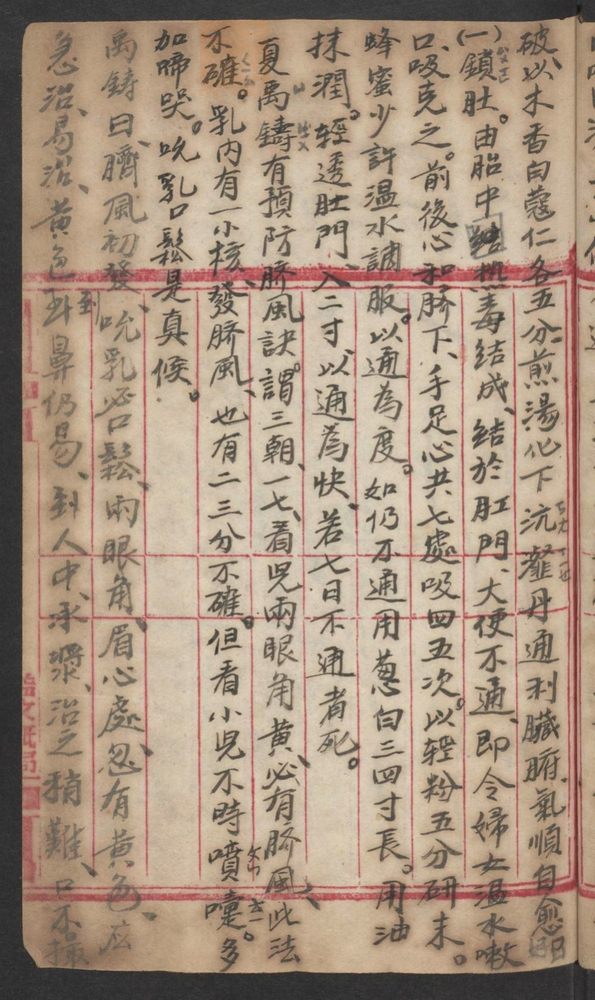 破、以木香白蔻仁各五分、煎湯化下沆瀣丹通利臟腑、氣順自愈
(一)鎖肚。由胎中熱毒結成、結於肛門、大便不通、即令婦女温水嗽
口、吸克之。前後心和臍下、手足心共七處吸四五次。以輕粉五分研末。
蜂蜜少許温水調服。以通為度。如仍不通用葱白三四寸長。用油
抹潤。輕透肚門、入二寸、以通為快、若七日不通者死。
夏禹鑄有預防臍風訣。謂三朝、一七、看児兩眼角黄、必有臍風、此法
不確。乳内有一小核、發臍風、也有二三分不確。但看小児不時噴嚏。多
加啼哭。吮乳口鬆是真候。
禹鑄曰、臍風初發、吮乳必口鬆、兩眼角、眉心處、忽有黄色、宜
急治、易治、黄色到鼻仍易、到人中、承漿、治之稍難、口不撮